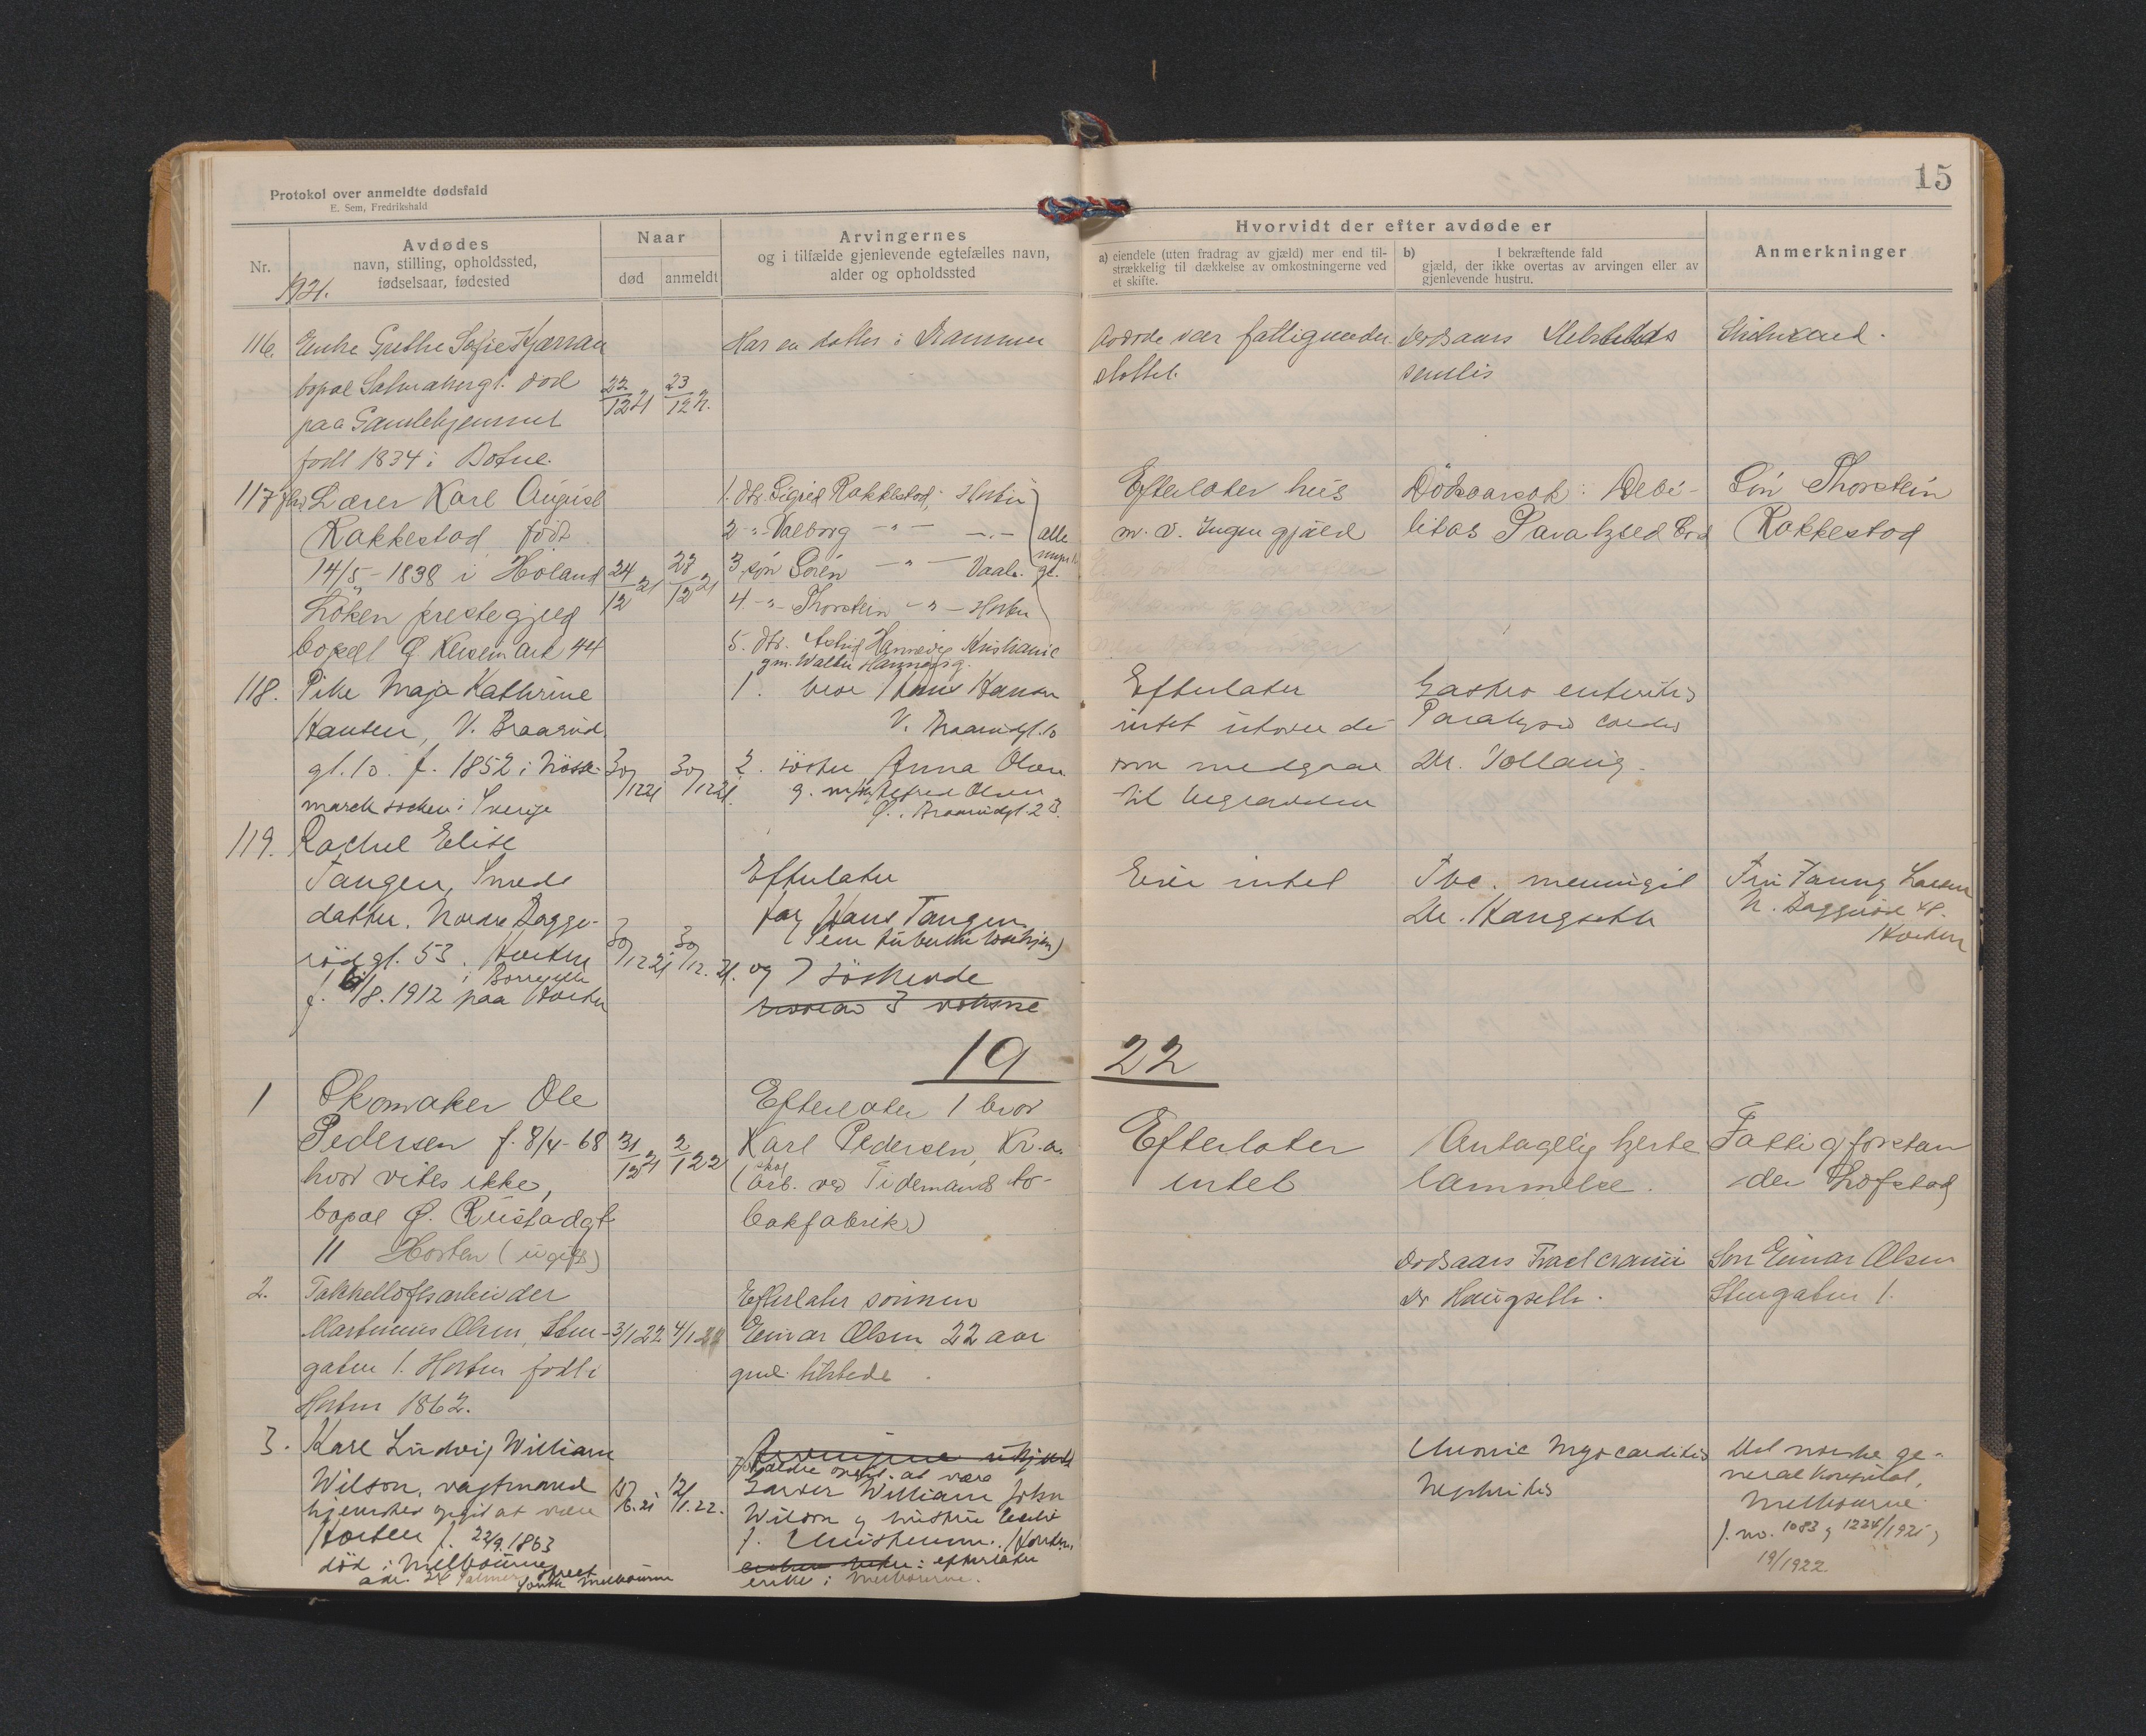 15
Protokol over anmeldte dødsfald
E. Sem, Fredrikshald
Nr.
Avdødes
navn, stilling, opholdssted,
fødselsaar, fødested
1921.
Naar
død
anmeldt
Arvingernes
og i tilfælde gjenlevende egtefælles navn,
alder og opholdssted
Hvorvidt der efter avdøde er
a) eiendele (uten fradrag av gjæld) mer end til-
strækkelig til dækkelse av omkostningerne ved
et skifte.
b) I bekræftende fald
gjæld, der ikke overtas av arvingen eller av
gjenlevende hustru.
Anmerkninger
116. Enke Grethe Sofie
bopæl død
paa Gamlehjemmet
født 1834 i Botne.
22/12 21
23/12 21.
Har en datter i Drammen
Avdøde var fattigunder-
støttet.
Dødsaars
senilis
117 Lærer Karl August
Rakkestad født
14/5 - 1838 i Høland
Løken prestegjeld
bopæl Ø Keisemark 44
24/12 21
28/12 21
1. Dtr. Sigrid Rakkestad, Horten
2 " Valborg - " -
3 søn Sören - " - Vaale.
4 - " - Thorstein - " - Horten
5. Dtr. Astrid Hannevig Kristiania
gm. Walter Hannevig.
alle
Efterlater hus
m. v. Ingen gjæld
Dödsaarsak: Debi-
litas Paralysed Cord
Sön Thorstein
Rakkestad
118. Pike Maja Kathrine
Hansen, V. Braarud
gt. 10. f. 1852 i Nösse-
mark socken i Sverige
30/12 21
30/12 21.
1. bror Hans Hansen
V. Braarudgt. 10
2. söster Anna Olsen
g. m. Alfred Olsen
Ø. Braarudgt. 23.
Efterlater
intet utover de
som medgaar
til begravelsen
Gastro enteritis
Paralysis cordis
Dr.
119. Rachel Elise
Tangen, Smeds
datter. Nordre Bagge-
rödgt. 53. Horten
i Borre
f. 6/8. 1912 paa Horten
30/12 21
30/12. 21.
Efterlater
far Hans Tangen
og 7 söskende
hvorav 3 voksne
Eier intet
Tbc. meningit
Dr. Haugseth
Fru Fanny Larsen
N. Baggeröd 48.
Horten
1922
1 Skomaker Ole
Pedersen f. 8/4 - 68
hvor vites ikke,
bopæl Ø. Rustadgt
11 Horten (ugift)
31/12 21
2/1 22
Efterlater 1 bror
Karl Pedersen, Kr.a.
(skal
arb. ved Tidemands to-
bakfabrik)
Efterlater
intet
Antagelig hjerte
lammelse.
Fattigforstan
der Lofstad
2. Takkelloftsarbeider
Martinius Olsen, Sten-
gaten 1. Horten født i
Horten 1862.
3/1 22
4/1 22
Efterlater sønnen
Einar Olsen 22 aar
gml. tilstede.
Dødsaars Fract cranii
Dr Haugseth.
Søn Einar Olsen
Stengaten 1.
3. Karl Ludvig William
Wilson, vagtmand
hjemsted opgit at være
Horten f. 22/9. 1863
død i Melbourne
adr. 24 Palmer street
South Melbourne
15/6. 21
12/1. 22.
Arvingene ukjendt
Forældre opgit at være
Garver William John
Wilson og hustru
f. Christensen. Horten,
efterlater
enke i Melbourne.
Chronic Myocarditis
Nephritis
Det norske ge-
neral konsulat,
Melbourne.
j. no. 1083 og 1224/1921 og
19/1922.